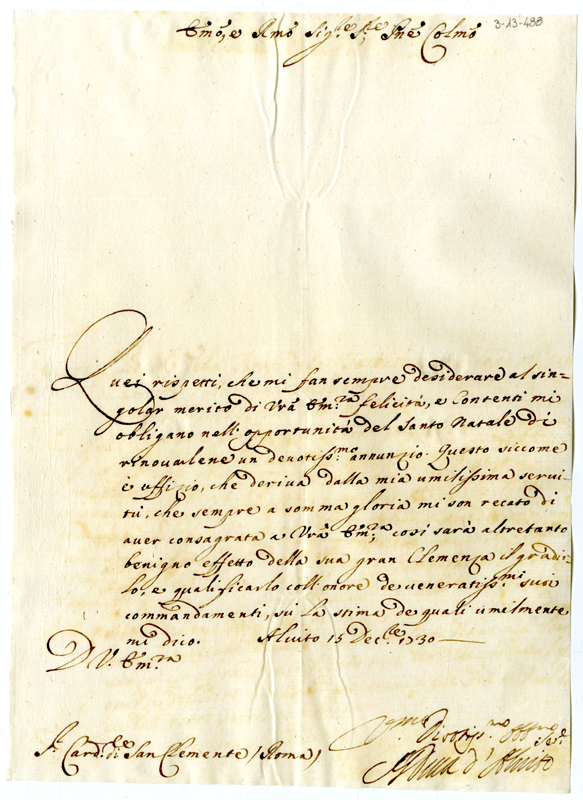 3-13-488
Emo, e Rmo Sig.re S.re Pne Colmo
Quei rispetti, che mi fan sempre desiderare al sin=
golar merito di Vrã Em.za felicità, e contenti mi
obligano nell'opportunità del Santo Natale di
rinovalene un devotiss.mo annunzio. Questo siccome
è uffizio, che deriva dalla mia umilissima servi-
tù, che sempre a somma gloria mi son recato di
aver consagrata a Vrã Em.za, così sarà altretanto
benigno effetto della sua gran Clemenza il gradir-
lo, e qualificarlo coll'onore de veneratiss.mi suoi
commandamenti, sù la stima de quali umelmente
mi dico. Alvito 15 Dec.bre 1730
D V. Em.za
S.r Card.le di San Clemente (Roma)
d'Alvito